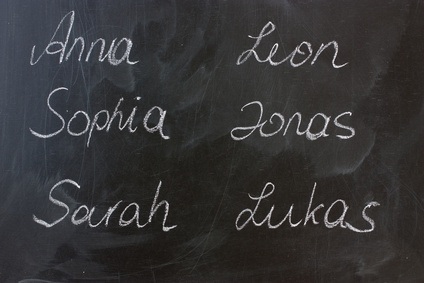 Anna Leon
Sophia Jonas
Sarah Lukas